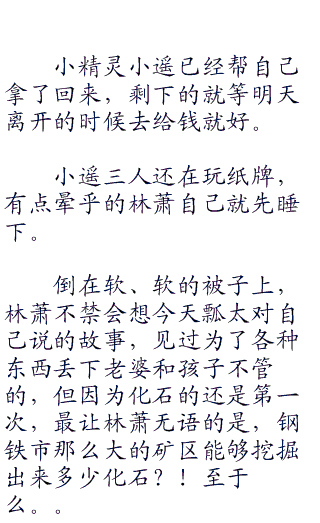 小精灵小遥已经帮自己
拿了回来，剩下的就等明天
离开的时候去给钱就好。
小遥三人还在玩纸牌，
有点晕乎的林萧自己就先睡
下。
倒在软、软的被子上，
林萧不禁会想今天瓢太对自
己说的故事，见过为了各种
东西丢下老婆和孩子不管
的，但因为化石的还是第一
次，最让林萧无语的是，钢
铁市那么大的矿区能够挖掘
出来多少化石？！至于
么。。